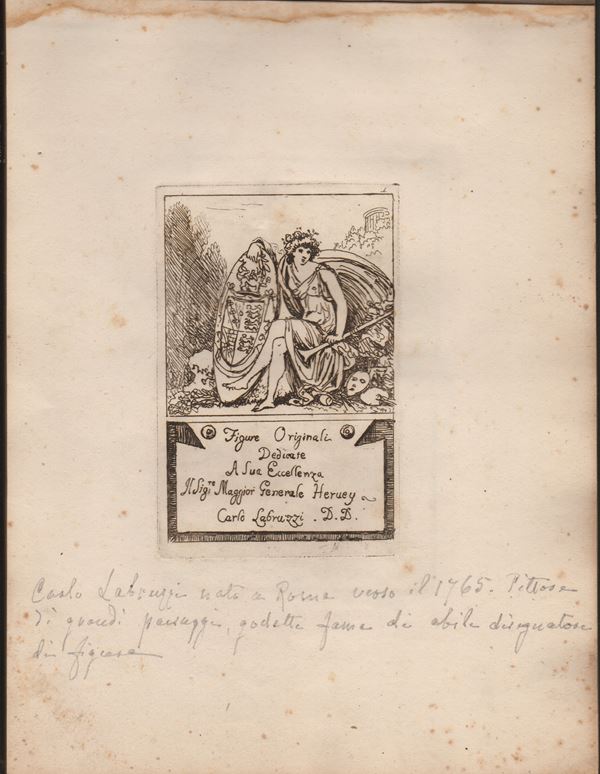 Figure Originali
Dedicate
A Sua Eccellenza
Il Sig.re Maggior Generale Hervey
Carlo Labruzzi . D. D.
Carlo Labruzzi nato a Roma verso il 1765. Pittore
di grandi paesaggi, godette fama di abile disegnatore
di figura